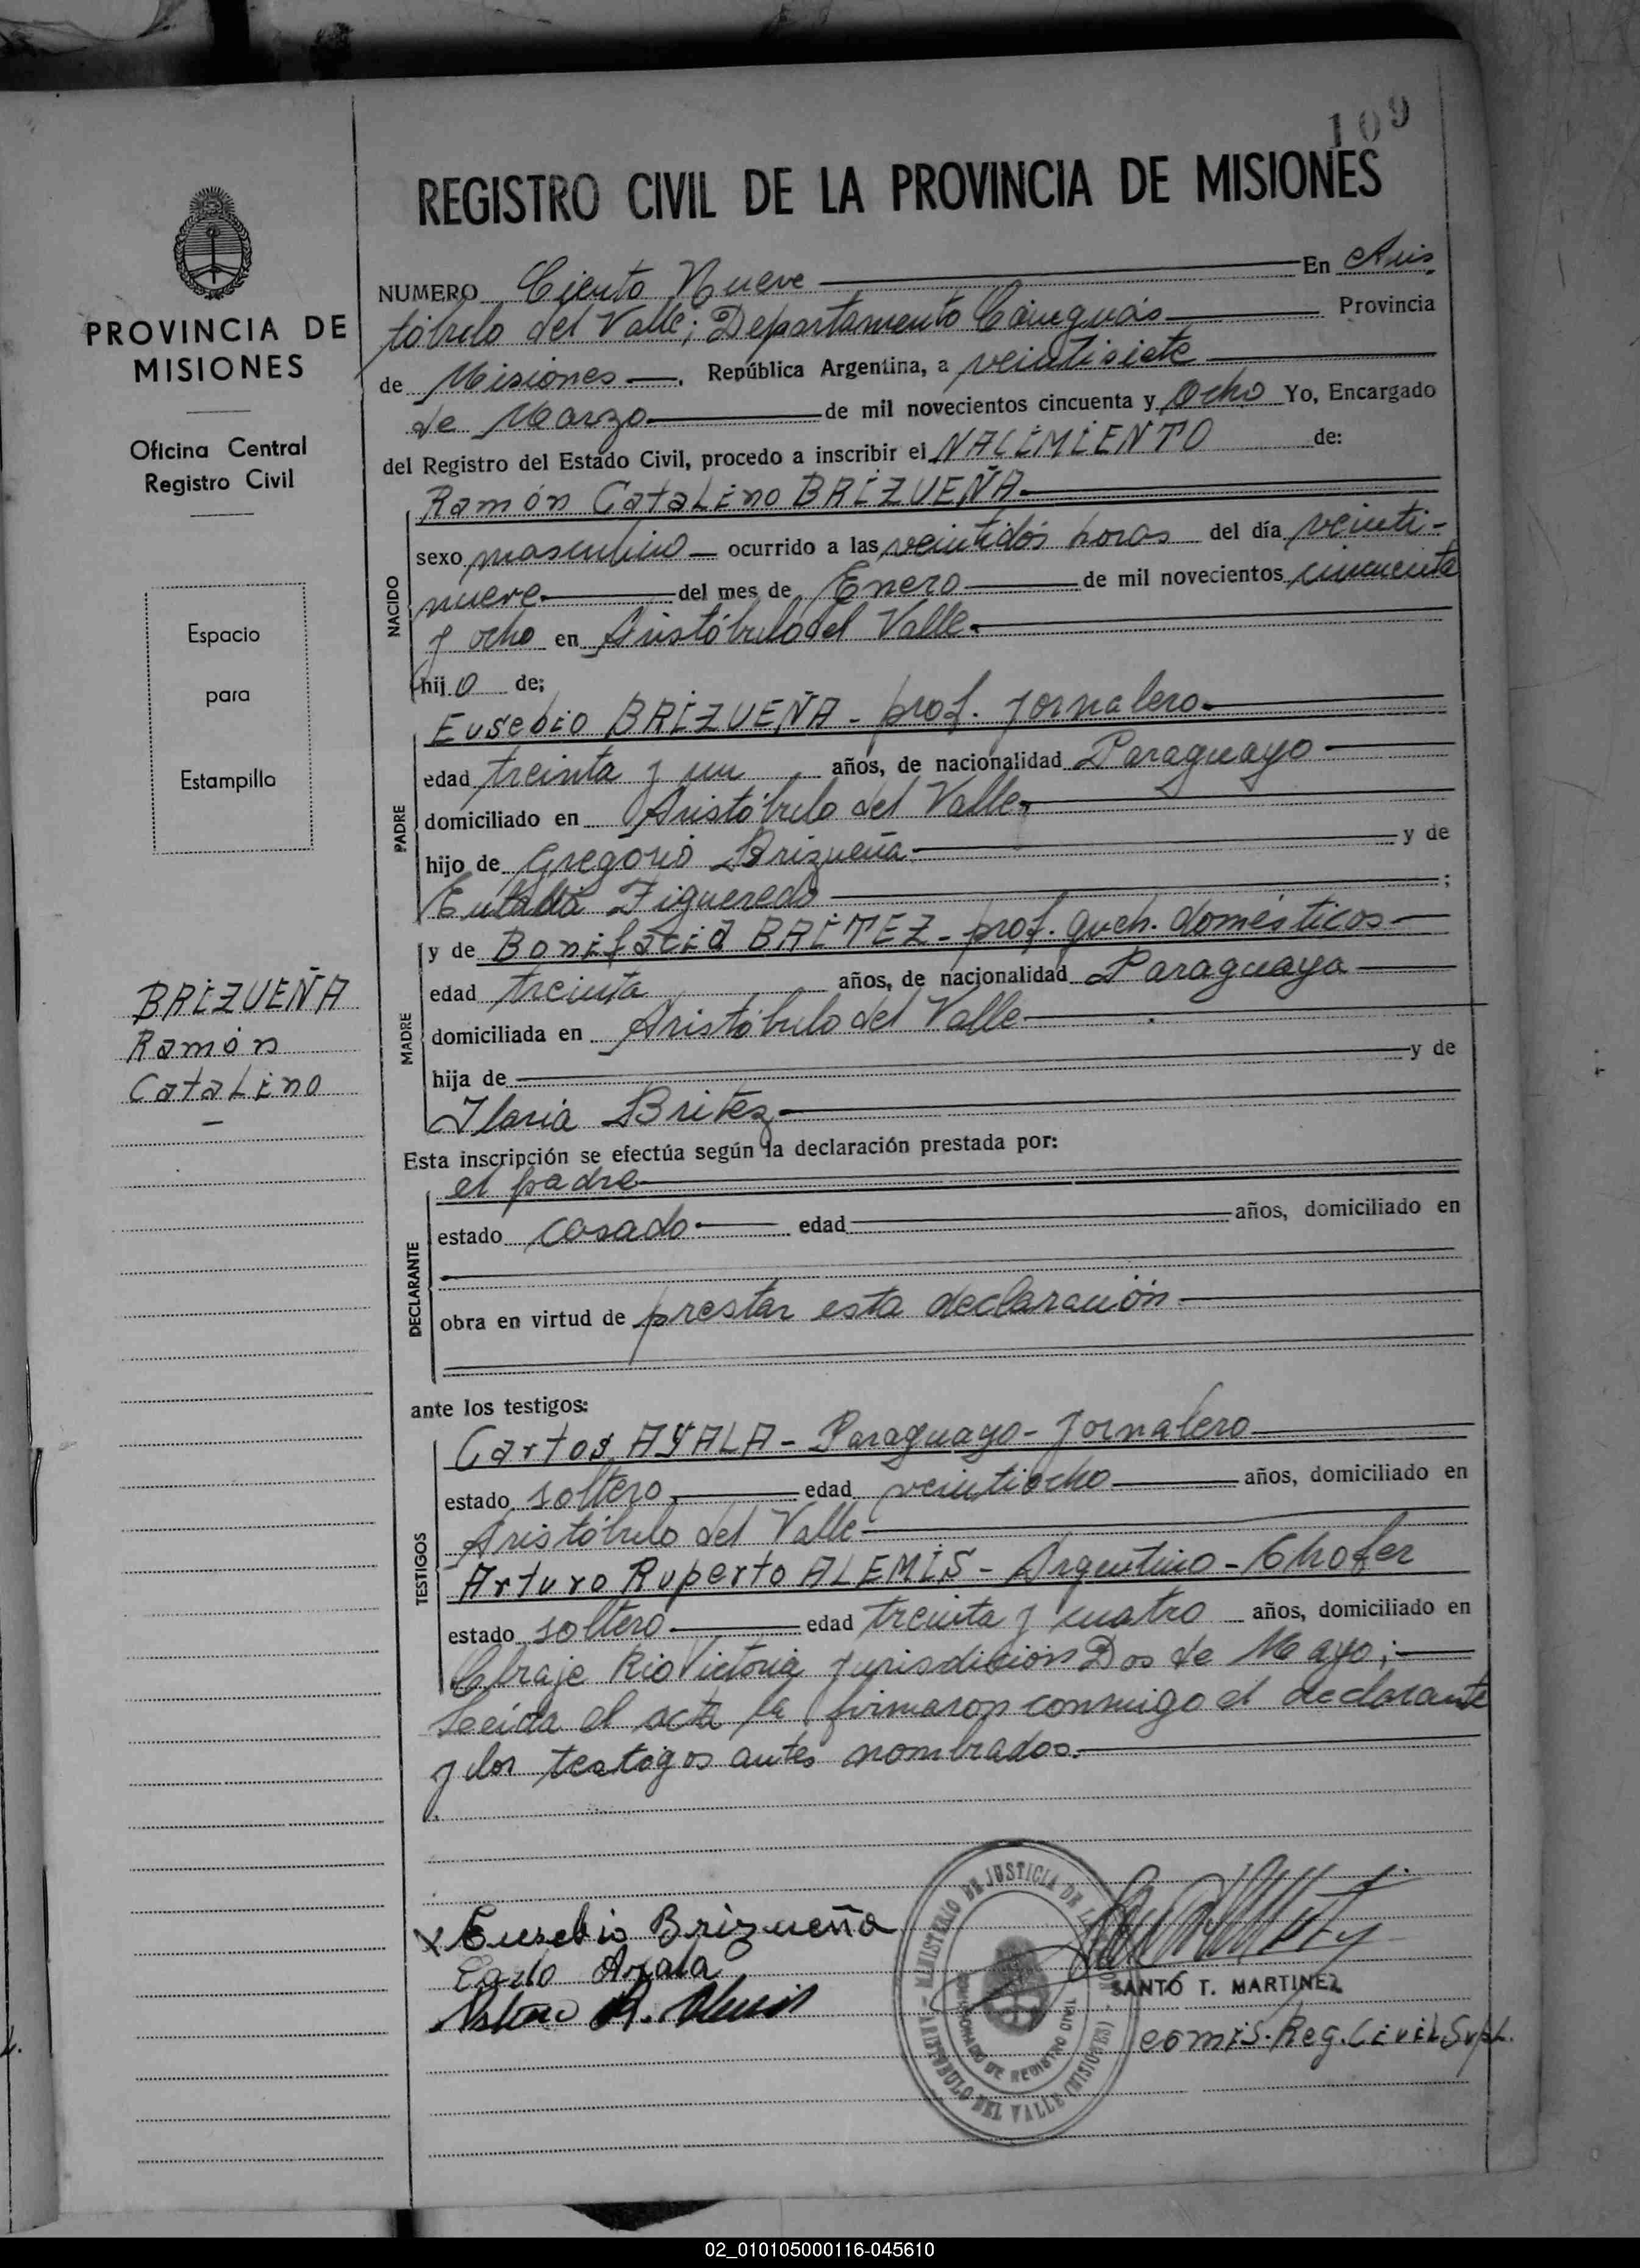 109
REGISTRO CIVIL DE LA PROVINCIA DE MISIONES
PROVINCIA DE
MISIONES
Oficina Central
Registro Civil
Espacio
para
Estampilla
BRIZUEÑA
Ramón
Catalino
NUMERO Ciento Nueve En Aris
tóbulo del Valle; Departamento Cainguás Provincia
de Misiones República Argentina, a veintisiete
de Marzo de mil novecientos cincuenta y Ocho Yo, Encargado
del Registro del Estado Civil, procedo a inscribir el NACIMIENTO de:
NACIDO
Ramón Catalino BRIZUEÑA
sexo masculino ocurrido a las veintidós horas del día veinti-
nueve del mes de Enero de mil novecientos cincuenta
y ocho en Aristóbulo del Valle
hijo de;
PADRE
Eusebio BRIZUEÑA - prof. Jornalero
edad treinta y un años, de nacionalidad Paraguayo
domiciliado en Aristóbulo del Valle
hijo de Gregorio Brizueña y de
Figueredo ;
MADRE
y de Bonifacia BRITEZ - prof. queh. domésticos
edad treinta años, de nacionalidad Paraguaya
domiciliada en Aristóbulo del Valle
hija de y de
Ilaria Britez
Esta inscripción se efectúa según la declaración prestada por:
DECLARANTE
el padre
estado casado edad años, domiciliado en
obra en virtud de prestar esta declaración
ante los testigos:
TESTIGOS
Carlos AYALA - Paraguayo - Jornalero
estado soltero edad veintiocho años, domiciliado en
Aristóbulo del Valle
Arturo Ruperto ALEMIS - Argentino - Chofer
estado soltero edad treinta y cuatro años, domiciliado en
Obraje Rio Victoria Jurisdicion Dos de Mayo;
Leeida el acta la firmaron conmigo el declarante
y los testigos antes nombrados.
x Eusebio Brizueña
Carlo Ayala
MINISTERIO DE JUSTICIA DE LA NACION
COMISIONADO DE REGISTRO CIVIL
ARISTOBULO DEL VALLE (MISIONES)
SANTO T. MARTINEZ
comis. Reg. Civil Supl.
02_010105000116-045610